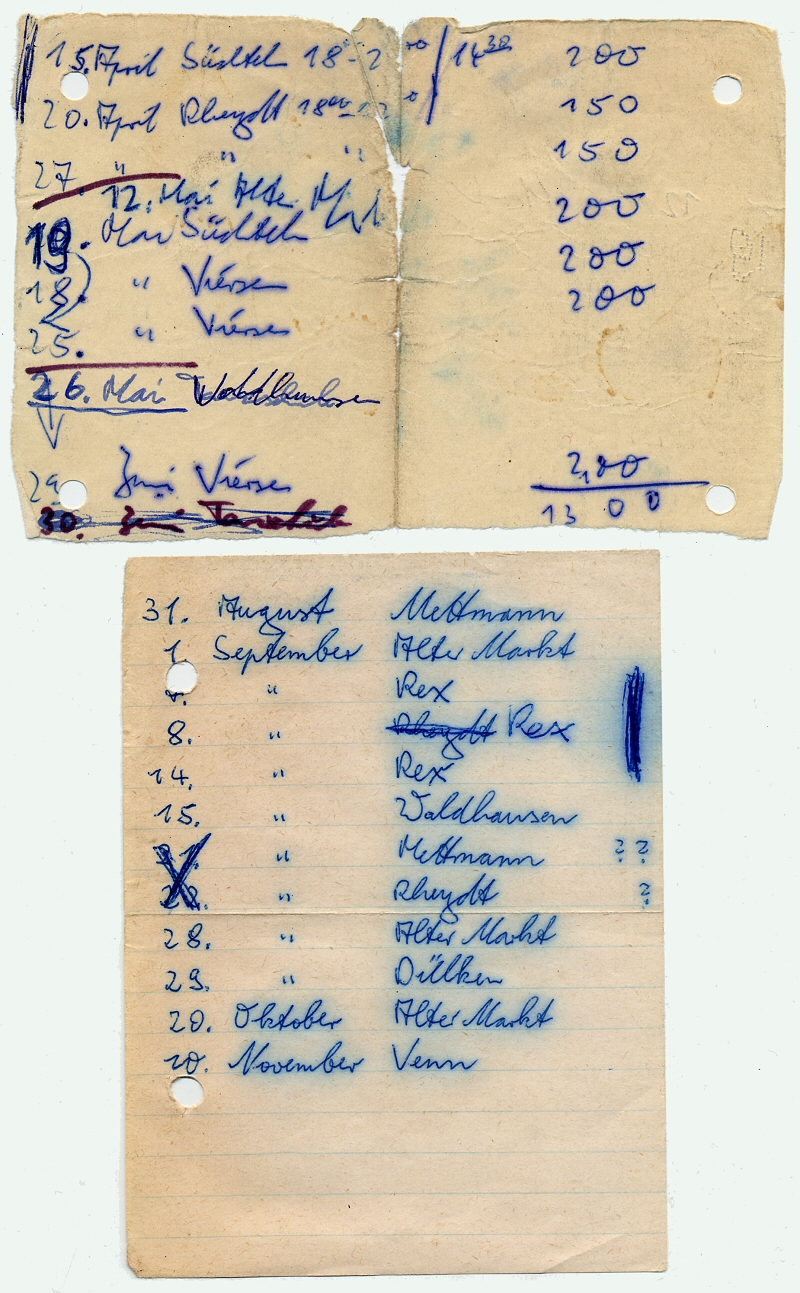 15. April Süchteln 18-2⁰⁰ / 14³⁰ 200
20. April Rheydt 18⁰⁰-12 150
27. " " " 150
12. Mai Alter Markt 200
19. Mai Süchteln 200
18. " Viersen 200
25. " Viersen
26. Mai Waldhausen
29. Juni Viersen 200
30. Juni 1300
31. August Mettmann
1. September Alter Markt
7. " Rex
8. " Rheydt Rex
14. " Rex
15. " Waldhausen
21. " Mettmann ? ?
22. " Rheydt ?
28. " Alter Markt
29. " Dülken
20. Oktober Alter Markt
20. November Venn